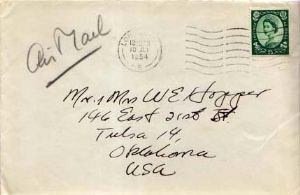 Air Mail
1954
Mr & Mrs W E Hopper
146 East 21st St.
Tulsa 14,
Oklahoma
USA